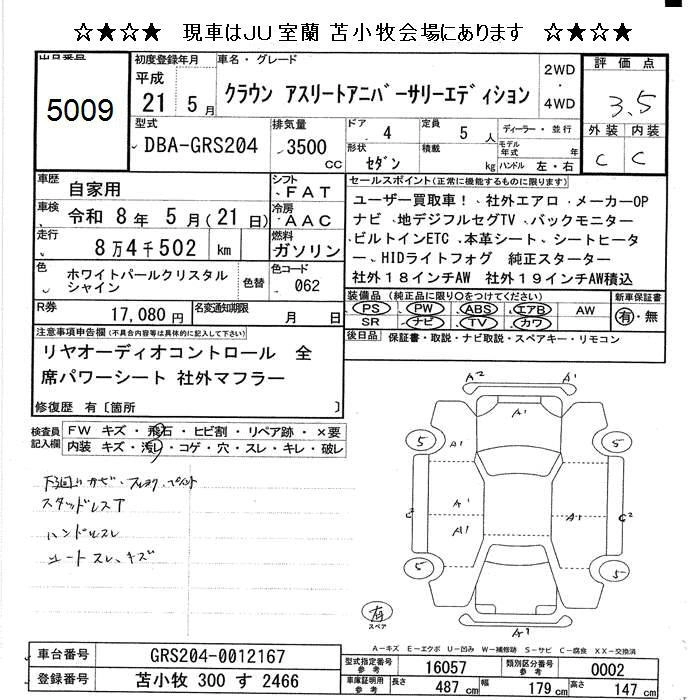 ☆★☆★ 現車はJU室蘭 苫小牧会場にあります ☆★☆★
出品番号
5009
初度登録年月
平成
21 5月
車名・グレード
クラウン アスリートアニバーサリーエディション
2WD
・
4WD
評価点
3.5
外装 内装
C C
型式
DBA-GRS204
排気量
3500
CC
ドア 4
定員 5人
形状 セダン
積載 kg
ディーラー・並行
モデル年式 年
ハンドル 左・右
車歴 自家用
シフト FAT
車検 令和 8年 5月(21日)
冷房 AAC
走行 8万4千502 km
燃料 ガソリン
色 ホワイトパールクリスタルシャイン
色替
色コード 062
R券 17,080円
名変通知期限 月 日
セールスポイント(正常に機能するものに限ります)
ユーザー買取車!、社外エアロ、メーカーOP
ナビ 、地デジフルセグTV、バックモニター
、ビルトインETC 、本革シート、シートヒータ
ー、HIDライトフォグ 純正スターター
社外18インチAW 社外19インチAW積込
装備品(純正品に限り○をつけてください)
PS PW ABS エアB AW
SR ナビ TV カワ
新車保証書
有・無
後日品 保証書・取説・ナビ取説・スペアキー・リモコン
注意事項申告欄(不具合内容等は具体的に記入して下さい)
リヤオーディオコントロール 全
席パワーシート 社外マフラー
修復歴 有〔箇所 〕
検査員記入欄
FW キズ・飛石・ヒビ割・リペア跡・×要
内装 キズ・汚れ・コゲ・穴・スレ・キレ・破レ
スタッドレスT
ハンドルスレ
シートスレ、キズ
A2 A1
A1
5 A1 5
A1
A1 A1 C2
5 5
A1
有
スペア
A-キズ E-エクボ U-凹み W-補修跡 S-サビ C-腐食 XX-交換済
車台番号 GRS204-0012167
登録番号 苫小牧 300 す 2466
型式指定番号 参考 16057
類別区分番号 参考 0002
車庫証明用 参考 長さ 487 cm 幅 179 cm 高さ 147 cm